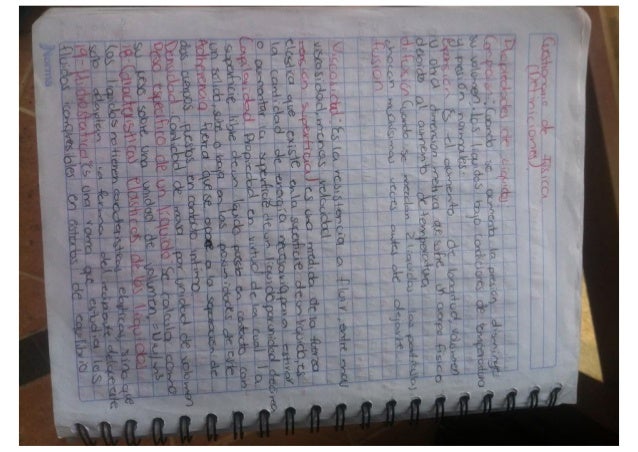 de Física
(Definiciones)
Propiedades de líquidos
Cuando se aumenta la presión, disminuye
su volumen, los líquidos bajo condiciones de temperatura
y presión normales
Es el aumento de longitud, volumen
u otra dimension metrica que sufre un cuerpo fisico
debido al aumento de temperatura
difusión Cuando se mezclan 2 liquidos, las particulas
chocan muchisimas veces antes de
fusión
Viscosidad Es la resistencia a fluir entre mas
viscosidad menos velocidad
Tensión superficial es una medida de la fuerza
elastica que existe en la superficie de un liquido es
la cantidad de energía necesaria para estirar
o aumentar la superficie de un liquido por unidad de area
Capilaridad Propiedad en virtud de la cual la
superficie libre de un liquido puesto en contacto con
un sólido sube o baja en las proximidades de este
Adherencia fuerza que se opone a la separación de
dos cuerpos puestos en contacto intimo
Densidad Cantidad de masa por unidad de volumen
Peso especifico de un liquido Se calcula como
su peso sobre una unidad de volumen
18- Caracteristicas elasticas de los liquidos
los liquidos no tienen caracteristicas elasticas, sino que
solo adoptan la forma del recipiente
19- hidrostatica Es una rama que estudia los
fluidos en estado de equilibrio
Norma